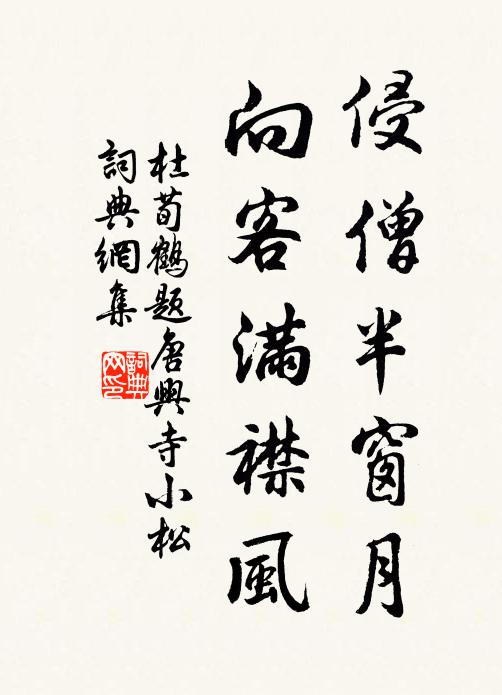 侵僧半窗月
向客满襟風
杜荀鶴題唐興寺小松
詞典網集
詞典网印